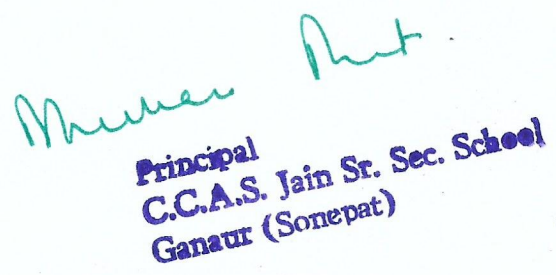 Principal
C.C.A.S. Jain Sr. Sec. School
Ganaur (Sonepat)